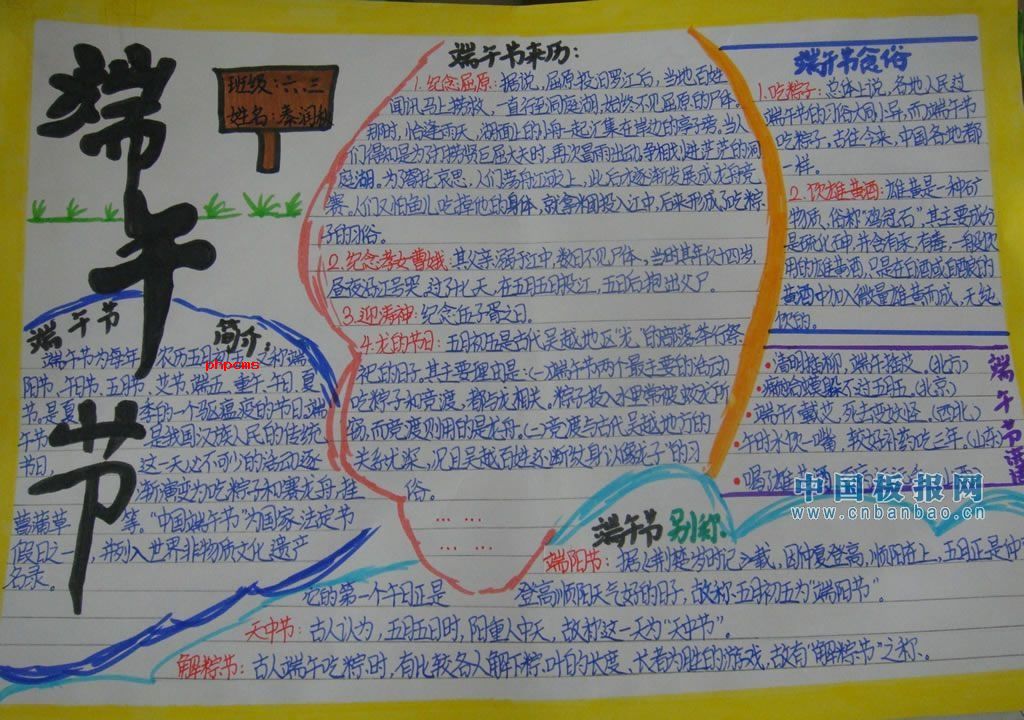 端午节
班级：六.三
姓名：秦润秋
端午节
简介：
端午节为每年农历五月初五，又称端
阳节，午日节，五月节，艾节，端五，重午，午日，夏
节。是夏季的一个驱瘟疫的节日。端
午节是我国汉族人民的传统
节日，这一天必不可少的活动逐
渐演变为吃粽子和赛龙舟，挂
菖蒲草等。“中国端午节”为国家法定节
假日之一，并列入世界非物质文化遗产
名录。
phpcms
端午节来历：
1.纪念屈原：据说，屈原投汨罗江后，当地百姓
闻讯马上捞救，一直行至洞庭湖，始终不见屈原的尸体。
那时，恰逢雨天，湖面上的小舟一起汇集在岸边的亭子旁。当人
们得知是为了打捞贤臣屈大夫时，再次冒雨出动，争相划进茫茫的洞
庭湖。为了寄托哀思，人们荡舟江河上，此后才逐渐发展成龙舟竞
赛。人们又怕鱼儿吃掉他的身体，就拿米团投入江中，后来形成了吃粽
子的习俗。
2.纪念孝女曹娥：其父亲溺于江中，数日不见尸体，当时其年仅十四岁，
昼夜沿江号哭。过了十七天，在五月五日投江，五日后抱出父尸。
3.迎涛神：纪念伍子胥之日。
4.龙的节日：五月初五是古代吴越地区“龙”的部落举行祭
祀的日子。其主要理由是：（一）端午节两个最主要的活动
吃粽子和竞渡，都与龙相关。粽子投入水里常被蛟龙所
窃，而竞渡则用的是龙舟。（二）竞渡与古代吴越地方的
关系尤深，况且吴越百姓还断纹身“以像龙子”的习
俗。
... ...
... ...
端午节食俗
1.吃粽子：总体上说，各地人民过
端午节的习俗大同小异，而端午节
吃粽子，古往今来，中国各地都
一样。
2.饮雄黄酒：雄黄是一种矿
物质，俗称“鸡冠石”，其主要成分
是硫化砷，并含有汞，有毒。一般饮
用的雄黄酒，只是在白酒或自酿的
黄酒中加入微量雄黄而成，无纯
饮的。
端午节谚语
·清明插柳，端午插艾。（北方）
·癞蛤蟆躲不过五月五。（北京）
·端午不戴艾，死去变妖怪。（西北）
·午时水饮一嘴，较好补药吃三年。（山东）
中国板报网
www.cnbanbao.cn
端午节别称：
端阳节：据《荆楚岁时记》载，因仲夏登高，顺阳在上，五月正是仲夏，
它的第一个午日正是登高顺阳天气好的日子，故称五月初五为“端阳节”。
天中节：古人认为，五月五日时，阳重人中天，故称这一天为“天中节”。
解粽节：古人端午吃粽时，有比较各人解下粽叶的长度、长者为胜的游戏，故有“解粽节”之称。